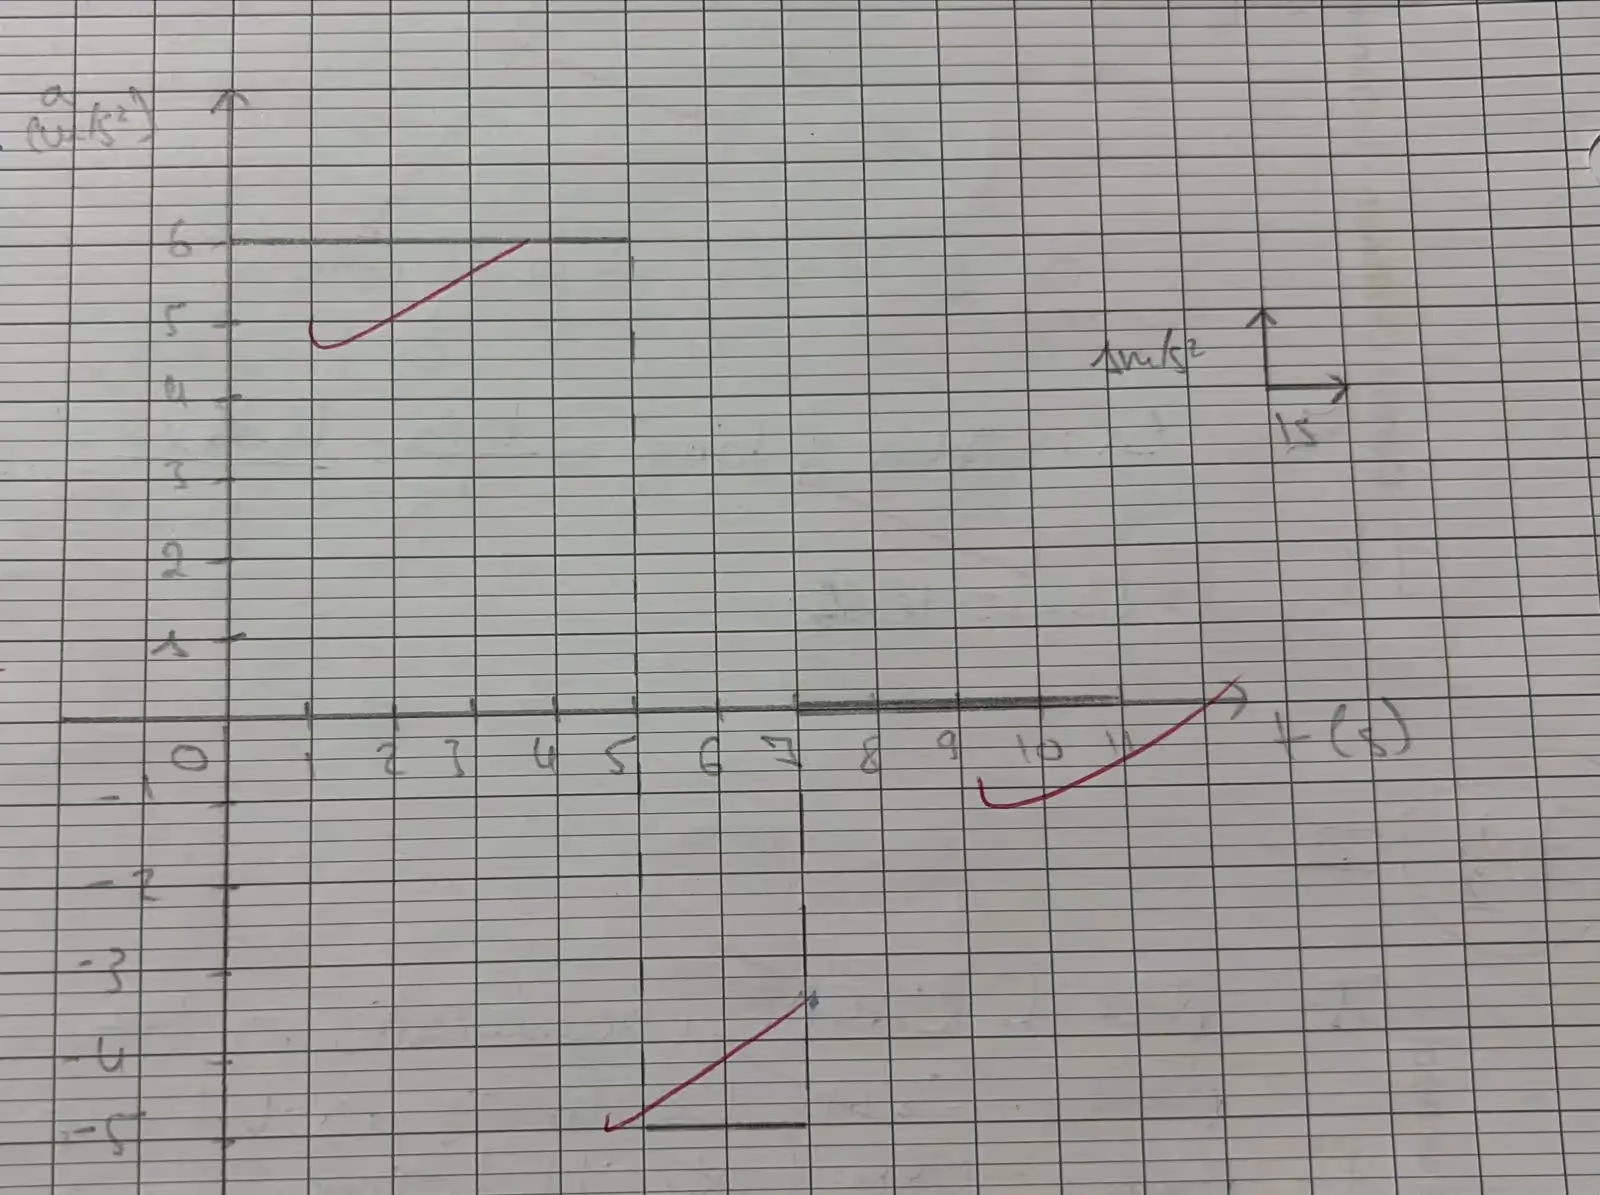 a
(m/s²)
6
5
4
3
1m/s²
1s
2
1
0 1 2 3 4 5 6 7 8 9 10 11 t (s)
-1
-2
-3
-4
-5